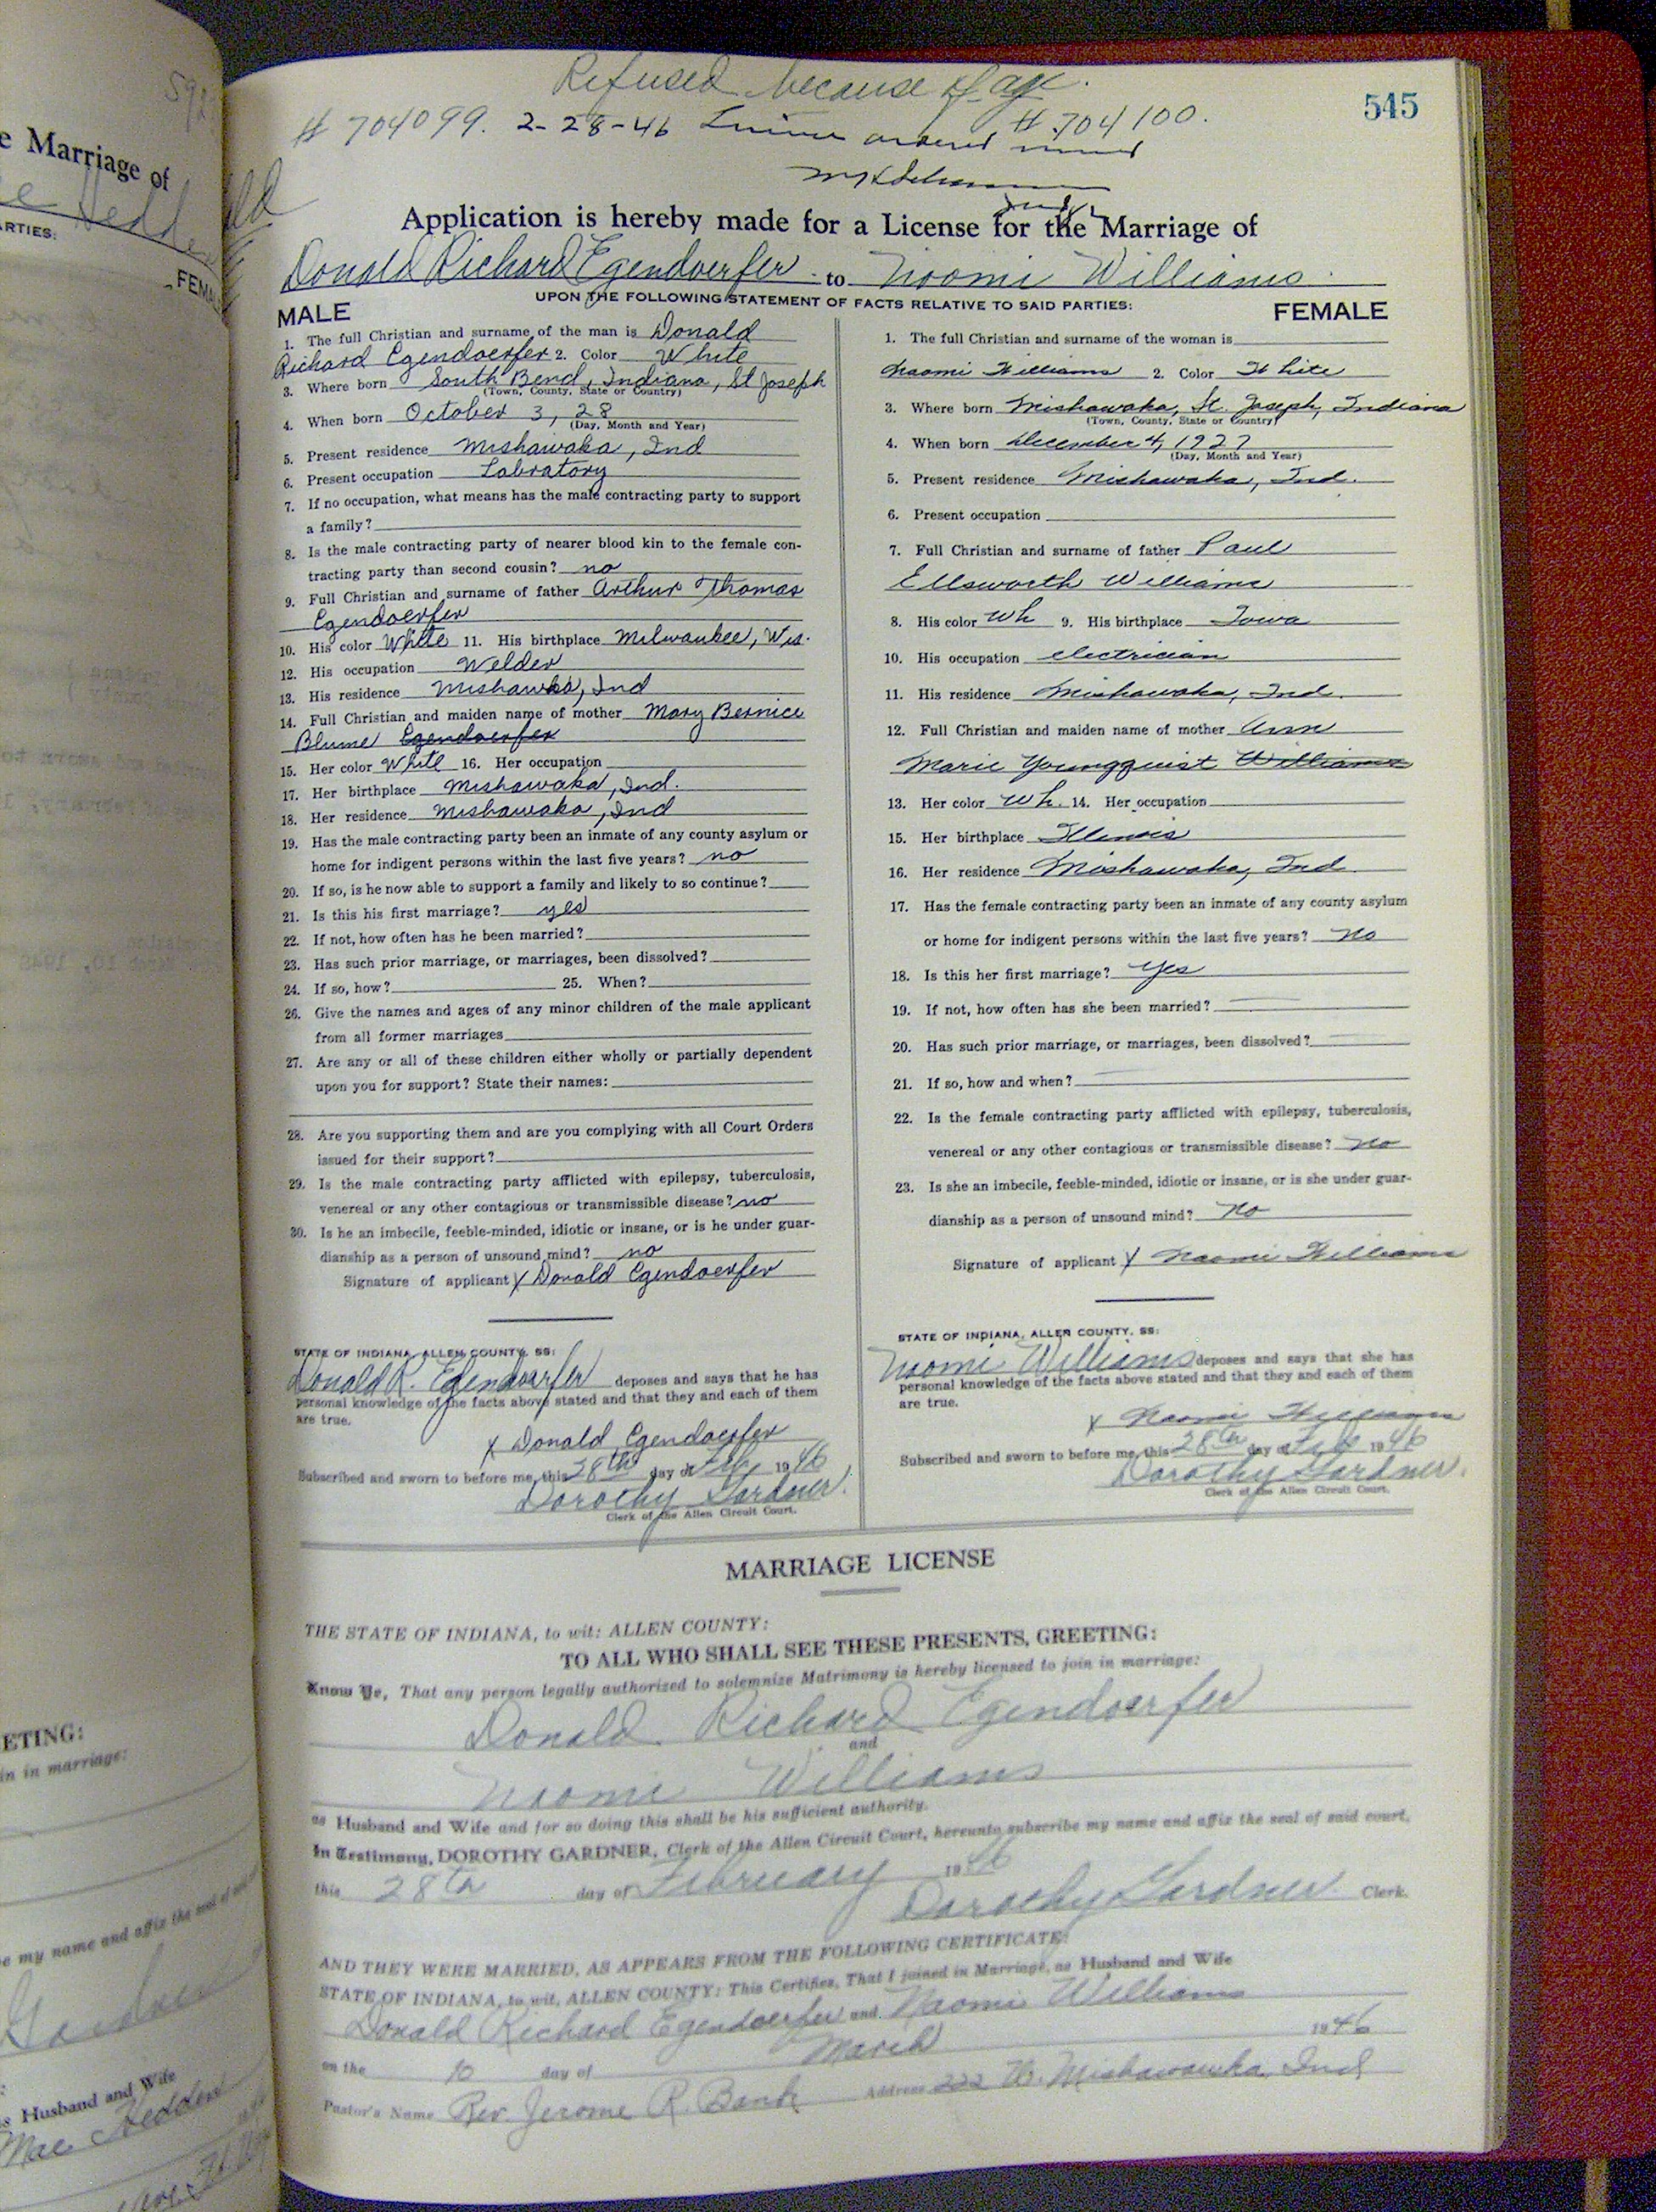 592
e Marriage of
ARTIES:
FEMA
545
Refused because of age.
# 704099. 2-28-46 License ordered issued # 704100.
Judge
Application is hereby made for a License for the Marriage of
Donald Richard Egendoerfer to Naomi Williams
UPON THE FOLLOWING STATEMENT OF FACTS RELATIVE TO SAID PARTIES:
MALE
1. The full Christian and surname of the man is Donald
Richard Egendoerfer 2. Color White
3. Where born South Bend, Indiana, St Joseph
(Town, County, State or Country)
4. When born October 3, 28
(Day, Month and Year)
5. Present residence Mishawaka, Ind
6. Present occupation Labratory
7. If no occupation, what means has the male contracting party to support
a family?
8. Is the male contracting party of nearer blood kin to the female con-
tracting party than second cousin? no
9. Full Christian and surname of father Arthur Thomas
Egendoerfer
10. His color White 11. His birthplace Milwaukee, Wis.
12. His occupation Welder
13. His residence Mishawka, Ind
14. Full Christian and maiden name of mother Mary Bernice
Blume Egendoerfer
15. Her color White 16. Her occupation
17. Her birthplace Mishawaka, Ind.
18. Her residence Mishawaka, Ind
19. Has the male contracting party been an inmate of any county asylum or
home for indigent persons within the last five years? no
20. If so, is he now able to support a family and likely to so continue?
21. Is this his first marriage? yes
22. If not, how often has he been married?
23. Has such prior marriage, or marriages, been dissolved?
24. If so, how? 25. When?
26. Give the names and ages of any minor children of the male applicant
from all former marriages
27. Are any or all of these children either wholly or partially dependent
upon you for support? State their names:
28. Are you supporting them and are you complying with all Court Orders
issued for their support?
29. Is the male contracting party afflicted with epilepsy, tuberculosis,
venereal or any other contagious or transmissible disease? no
30. Is he an imbecile, feeble-minded, idiotic or insane, or is he under guar-
dianship as a person of unsound mind? no
Signature of applicant X Donald Egendoerfer
STATE OF INDIANA, ALLEN COUNTY, SS:
Donald R. Egendoerfer deposes and says that he has
personal knowledge of the facts above stated and that they and each of them
are true.
X Donald Egendoerfer
Subscribed and sworn to before me, this 28th day of Feb. 1946
Dorothy Gardner.
Clerk of the Allen Circuit Court.
FEMALE
1. The full Christian and surname of the woman is
Naomi Williams 2. Color White
3. Where born Mishawaka, St. Joseph, Indiana
(Town, County, State or Country)
4. When born December 4, 1927
(Day, Month and Year)
5. Present residence Mishawaka, Ind.
6. Present occupation
7. Full Christian and surname of father Paul
Ellsworth Williams
8. His color Wh 9. His birthplace Iowa
10. His occupation electrician
11. His residence Mishawaka, Ind.
12. Full Christian and maiden name of mother Ann
Marie Youngquist Williams
13. Her color Wh. 14. Her occupation
15. Her birthplace Illinois
16. Her residence Mishawaka, Ind.
17. Has the female contracting party been an inmate of any county asylum
or home for indigent persons within the last five years? No
18. Is this her first marriage? Yes
19. If not, how often has she been married?
20. Has such prior marriage, or marriages, been dissolved?
21. If so, how and when?
22. Is the female contracting party afflicted with epilepsy, tuberculosis,
venereal or any other contagious or transmissible disease? No
23. Is she an imbecile, feeble-minded, idiotic or insane, or is she under guar-
dianship as a person of unsound mind? No
Signature of applicant X Naomi Williams
STATE OF INDIANA, ALLEN COUNTY, SS:
Naomi Williams deposes and says that she has
personal knowledge of the facts above stated and that they and each of them
are true.
X Naomi Williams
Subscribed and sworn to before me, this 28th day of Feb 1946
Dorothy Gardner.
Clerk of the Allen Circuit Court.
MARRIAGE LICENSE
THE STATE OF INDIANA, to wit: ALLEN COUNTY:
TO ALL WHO SHALL SEE THESE PRESENTS, GREETING:
Know Ye, That any person legally authorized to solemnize Matrimony is hereby licensed to join in marriage:
Donald Richard Egendoerfer
and
Naomi Williams
as Husband and Wife and for so doing this shall be his sufficient authority.
In Testimony, DOROTHY GARDNER, Clerk of the Allen Circuit Court, hereunto subscribe my name and affix the seal of said court,
this 28th day of February 1946
Dorothy Gardner Clerk.
AND THEY WERE MARRIED, AS APPEARS FROM THE FOLLOWING CERTIFICATE:
STATE OF INDIANA, to wit, ALLEN COUNTY: This Certifies, That I joined in Marriage, as Husband and Wife
Donald Richard Egendoerfer and Naomi Williams
on the 10 day of March 1946
Pastor's Name Rev. Jerome R. Bank Address 222 W. Mishawauka, Ind
ETING:
in in marriage:
e my name and affix the seal of
s Husband and Wife
Mae Hedden